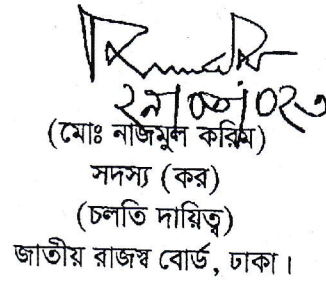 (মোঃ নাজমুল করিম)
সদস্য (কর)
(চলতি দায়িত্ব)
জাতীয় রাজস্ব বোর্ড, ঢাকা।